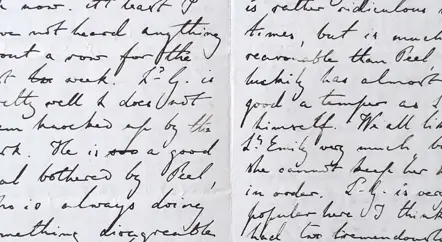 now. At least I
not heard anything
out a row for the
week. Ld. G. is
well & does not
knocked up by the
He is a good
bothered by Peel,
is always doing
something disagreeable
is rather ridiculous
times, but is much
reasonable than Peel,
luckily has almost
good a temper as
himself. We all
Ly. Emily very much
she cannot keep her
in order. Ld. G. is
popular here I think
had two tremendous